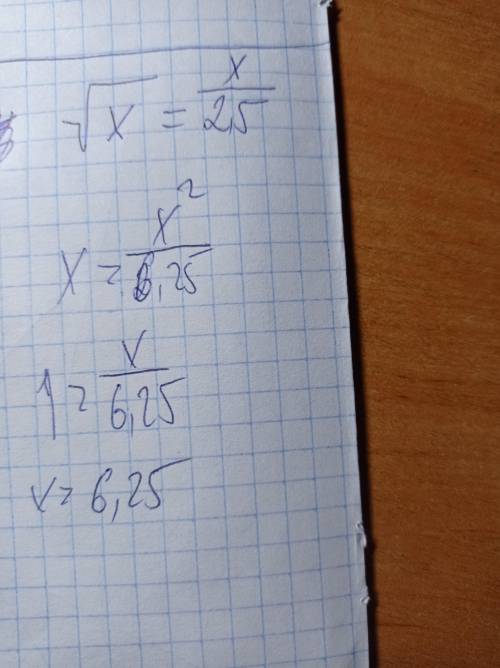 √x = x/2,5
x = x²/6,25
1 = x/6,25
x = 6,25